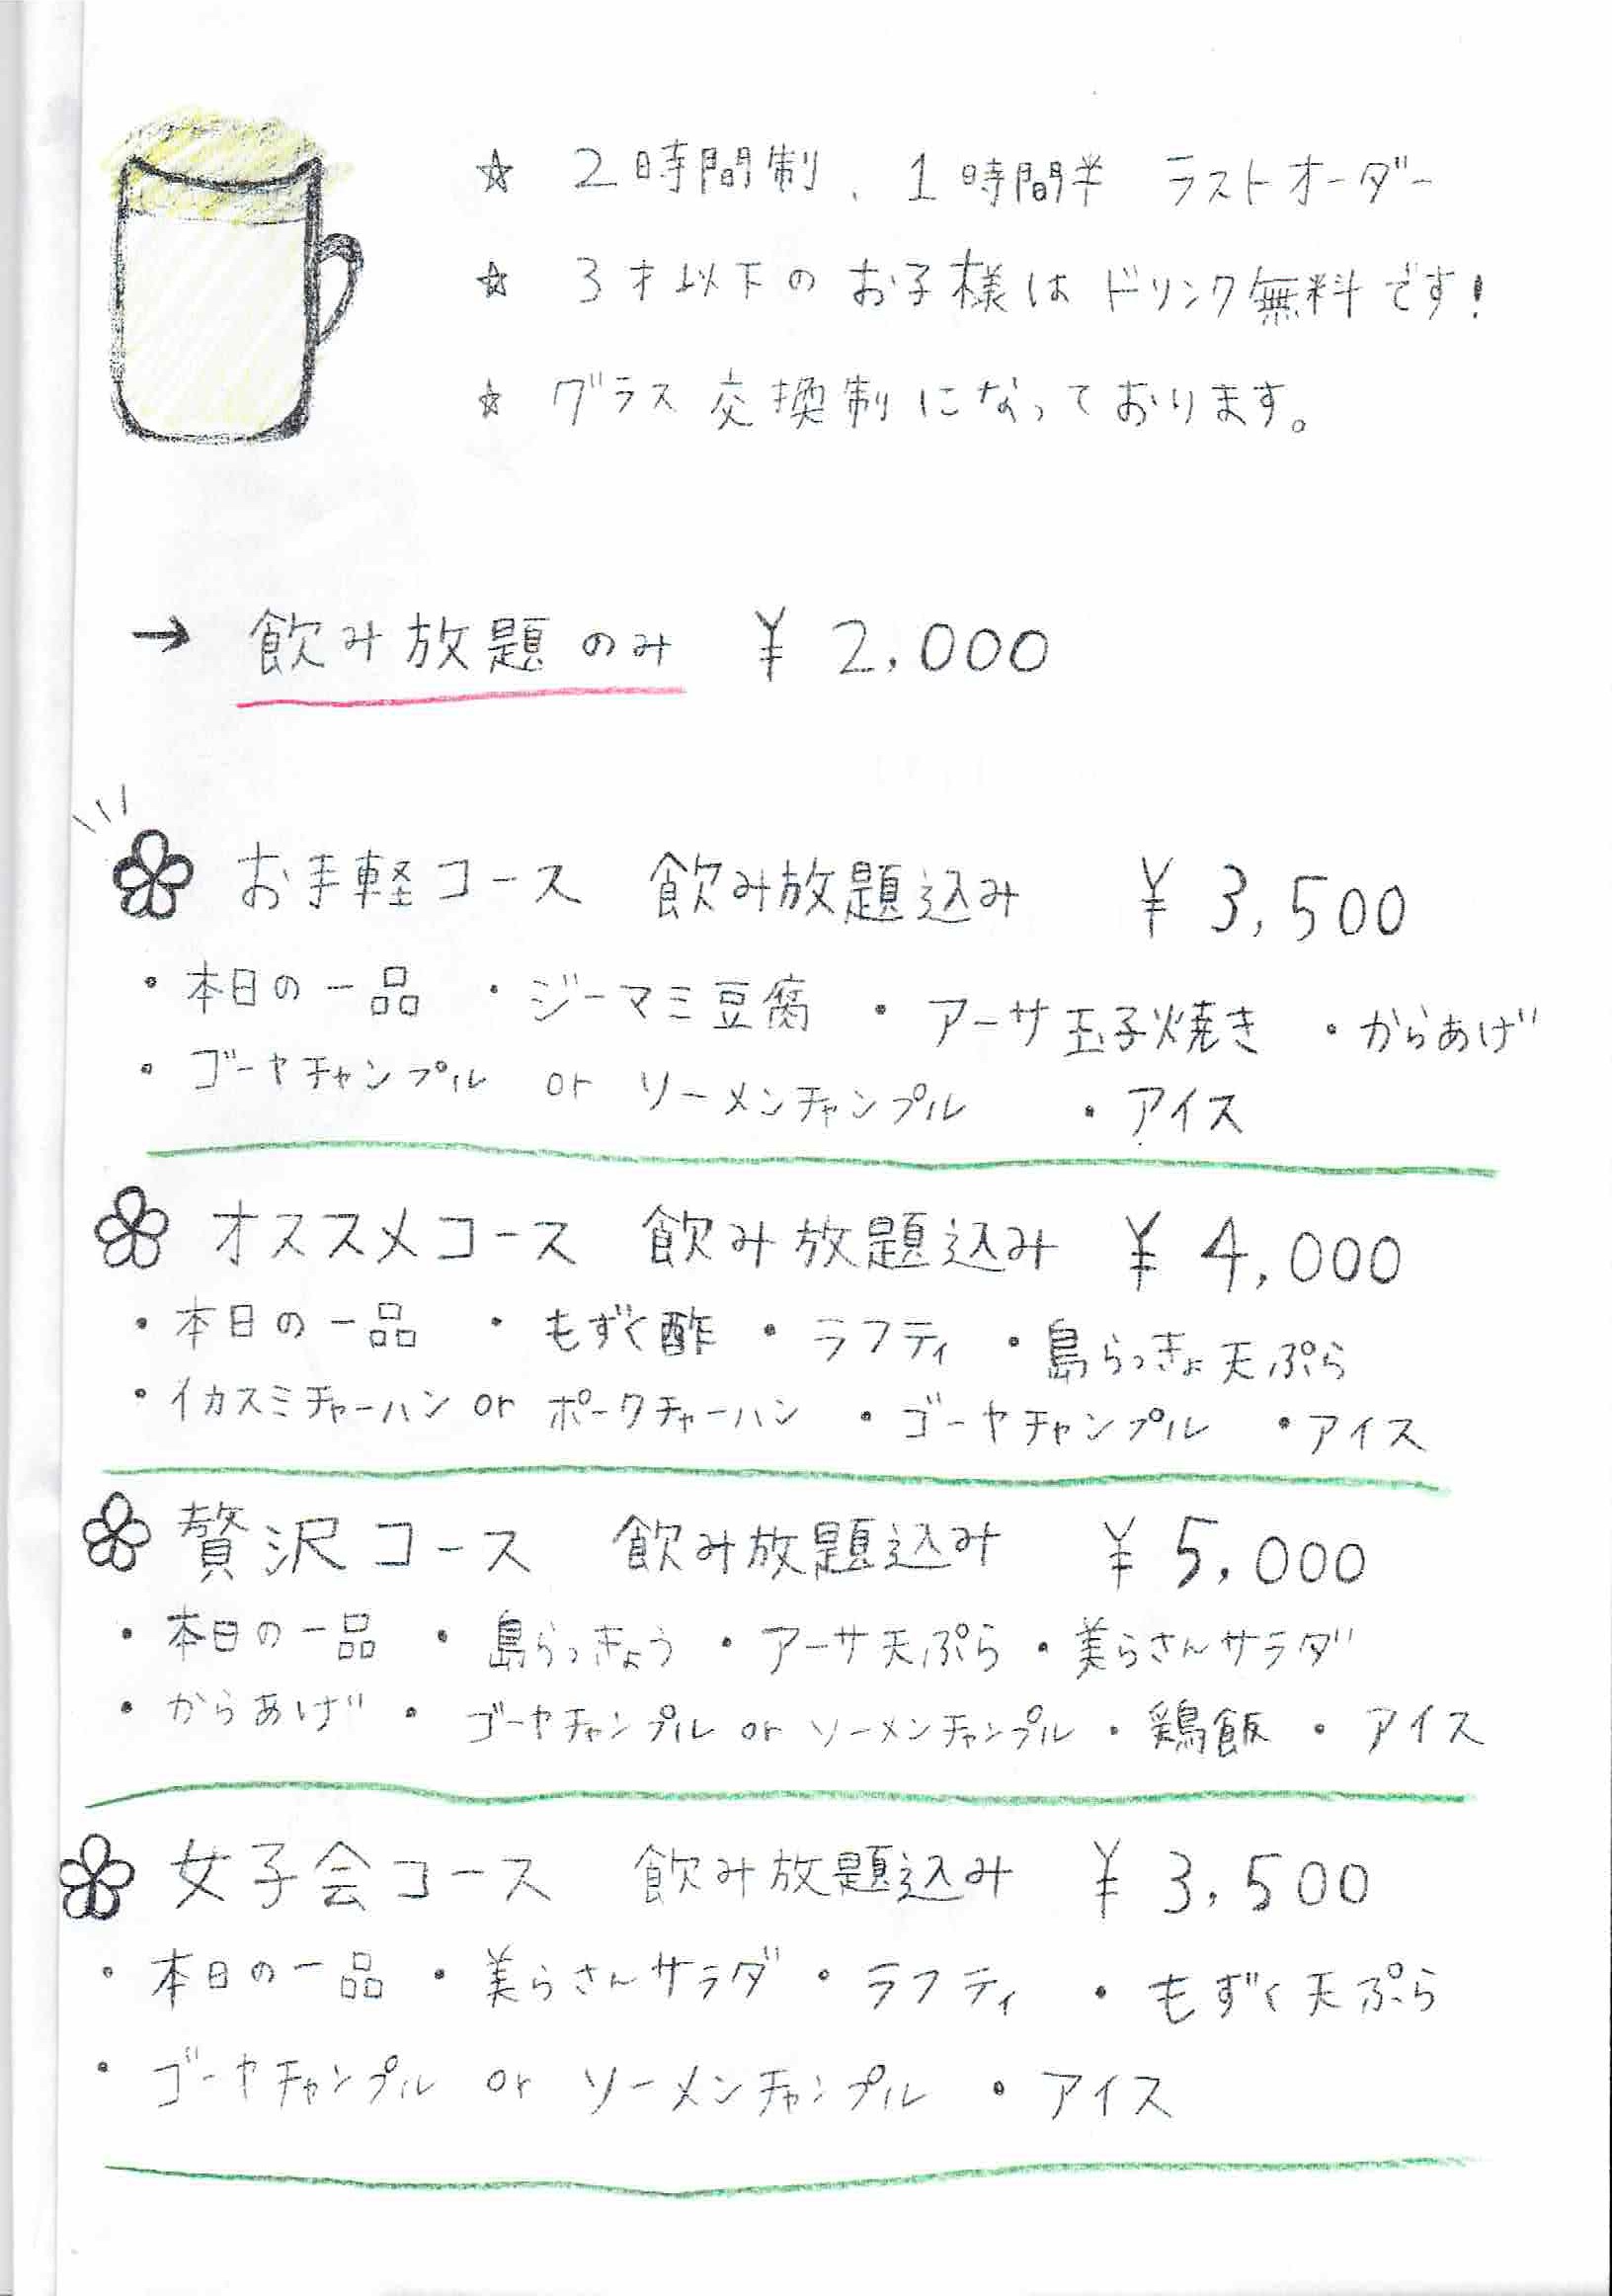 ☆ 2時間制、1時間半 ラストオーダー
☆ 3才以下のお子様はドリンク無料です!
☆ グラス交換制になっております。
→ 飲み放題のみ ¥2,000
お手軽コース 飲み放題込み ¥3,500
・本日の一品 ・ジーマミ豆腐 ・アーサ玉子焼き ・からあげ
・ゴーヤチャンプル or ソーメンチャンプル ・アイス
オススメコース 飲み放題込み ¥4,000
・本日の一品 ・もずく酢 ・ラフティ ・島らっきょ天ぷら
・イカスミチャーハン or ポークチャーハン ・ゴーヤチャンプル ・アイス
贅沢コース 飲み放題込み ¥5,000
・本日の一品 ・島らっきょう ・アーサ天ぷら ・美らさんサラダ
・からあげ ・ゴーヤチャンプル or ソーメンチャンプル ・鶏飯 ・アイス
女子会コース 飲み放題込み ¥3,500
・本日の一品 ・美らさんサラダ ・ラフティ ・もずく天ぷら
・ゴーヤチャンプル or ソーメンチャンプル ・アイス